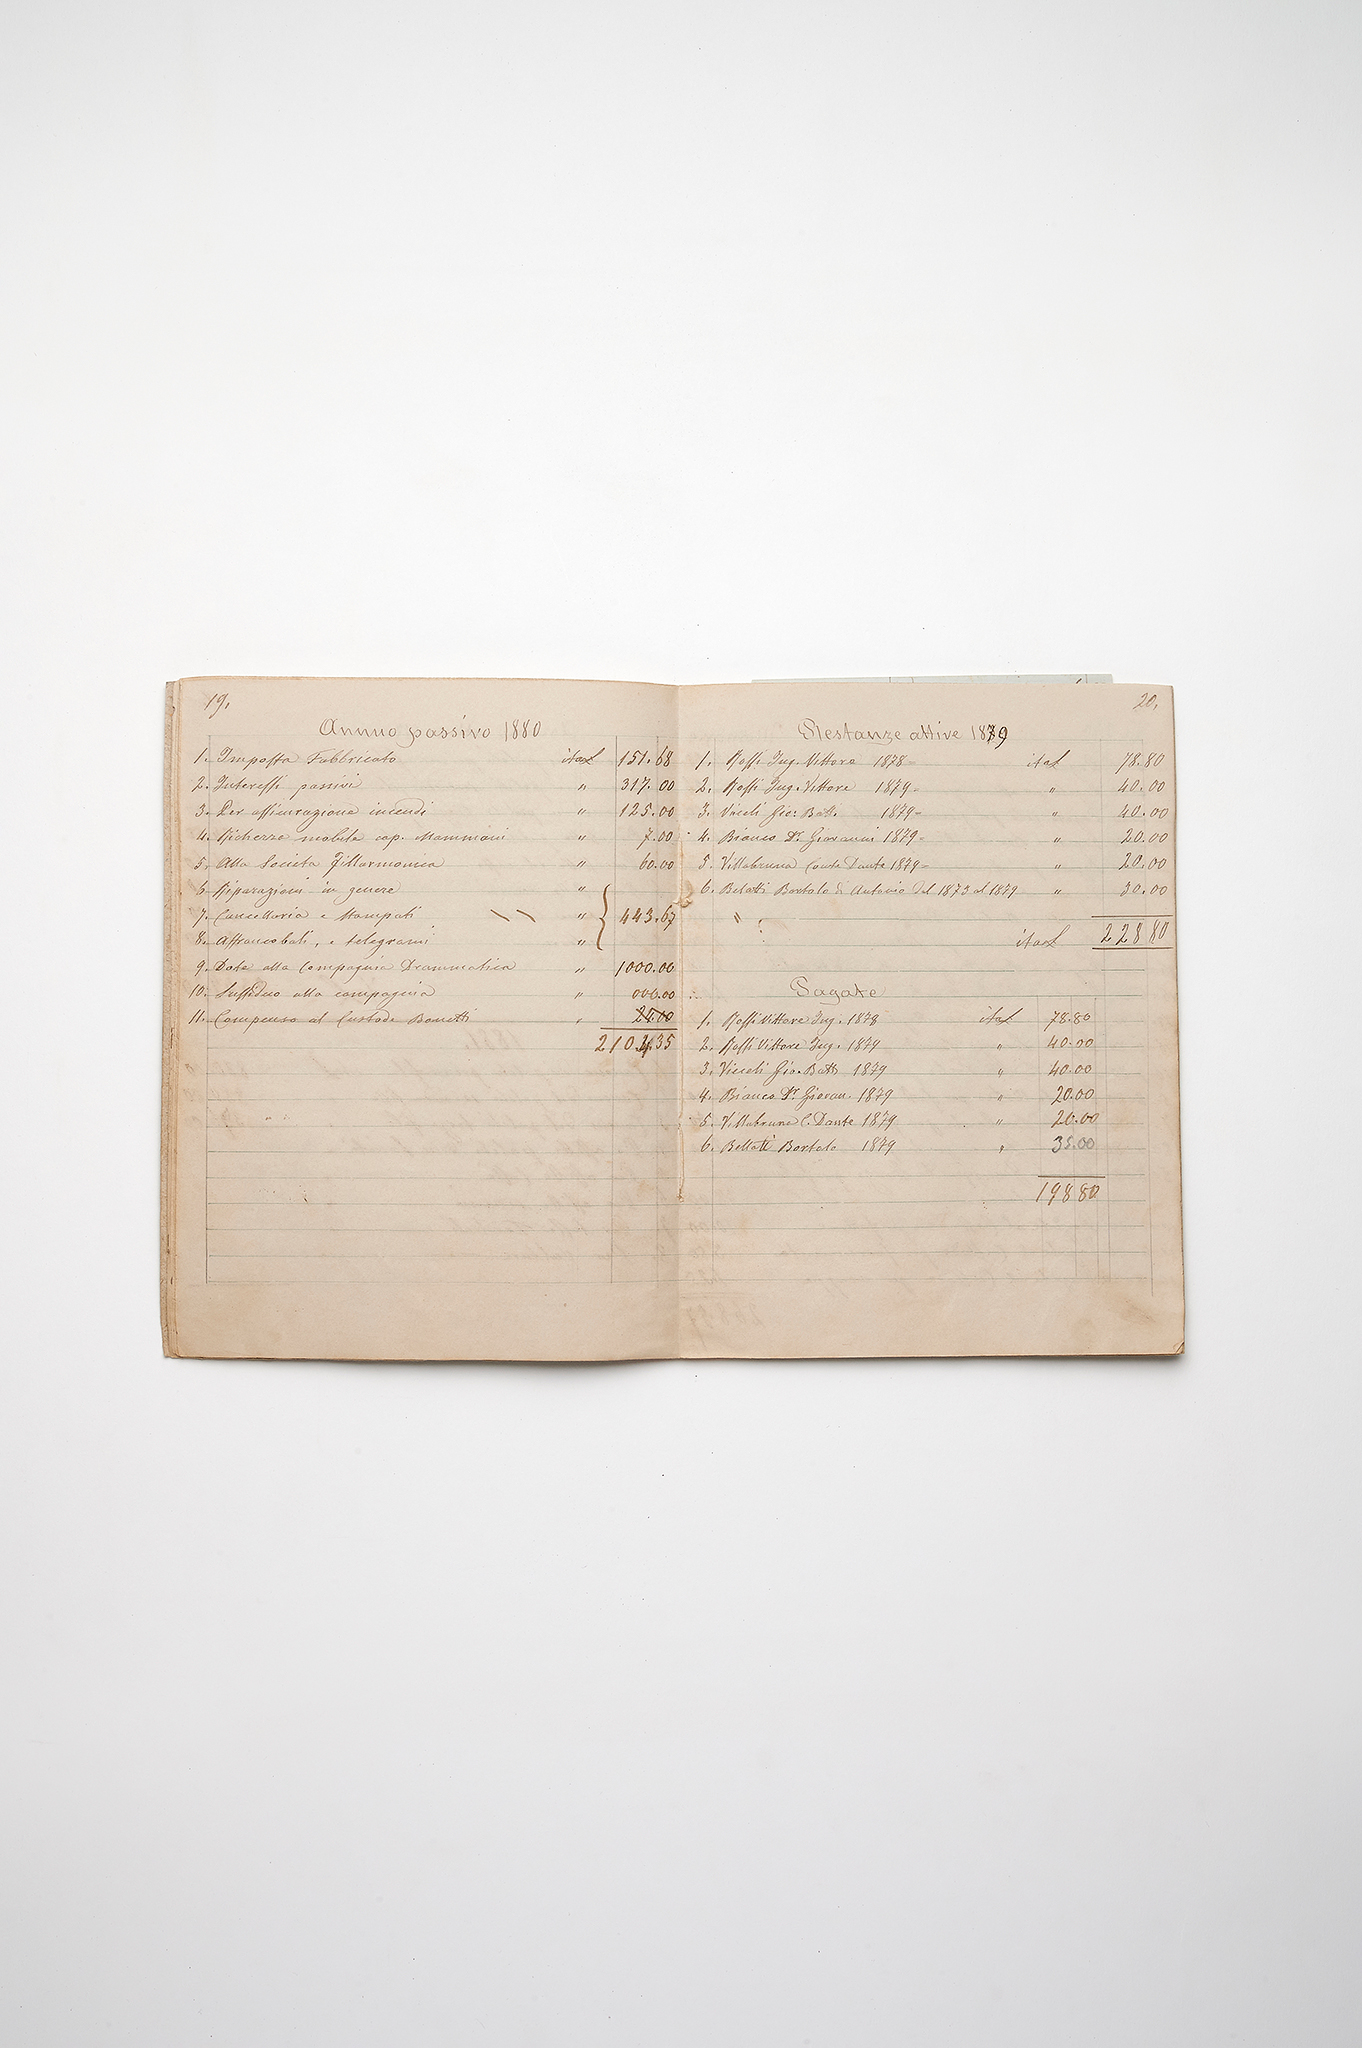 19.
Annuo passivo 1880
1. Imposta Fabbricato ital 151.68
2. Interessi passivi " 317.00
3. Per assicurazione incendi " 125.00
4. Richezza mobile cap. Mammani " 7.00
5. Alla Società Fillarmonica " 60.00
6. Riparazioni in genere "
7. Cancelleria e Stampati " 443.67
8. Affrancobali, e telegrami "
9. Dote alla Compagnia Drammatica " 1000.00
10. Sussidio alla compagnia " 000.00
11. Compenso al Custode Bonetti " 24.00
35
20.
Restanze attive 1879
1. Rossi Ing. Vittore 1878 = ital 78.80
2. Rossi Ing. Vittore 1879 = " 40.00
3. Vieceli Gio: Batt. 1879 = " 40.00
4. Bianco Dr. Giovanni 1879 = " 20.00
5. Villabruna Conte Dante 1879 = " 20.00
6. Belatti Bortolo di Antonio dal 1873 al 1879 " 30.00
"
ital 228 80
Pagate
1. Rossi Vittore Ing. 1878 ital 78.80
2. Rossi Vittore Ing. 1879 " 40.00
3. Vieceli Gio. Batt 1879 " 40.00
4. Bianco Dr. Giovan. 1879 " 20.00
5. Villabruna C. Dante 1879 " 20.00
6. Bellatti Bortolo 1879 " 35.00
198 80